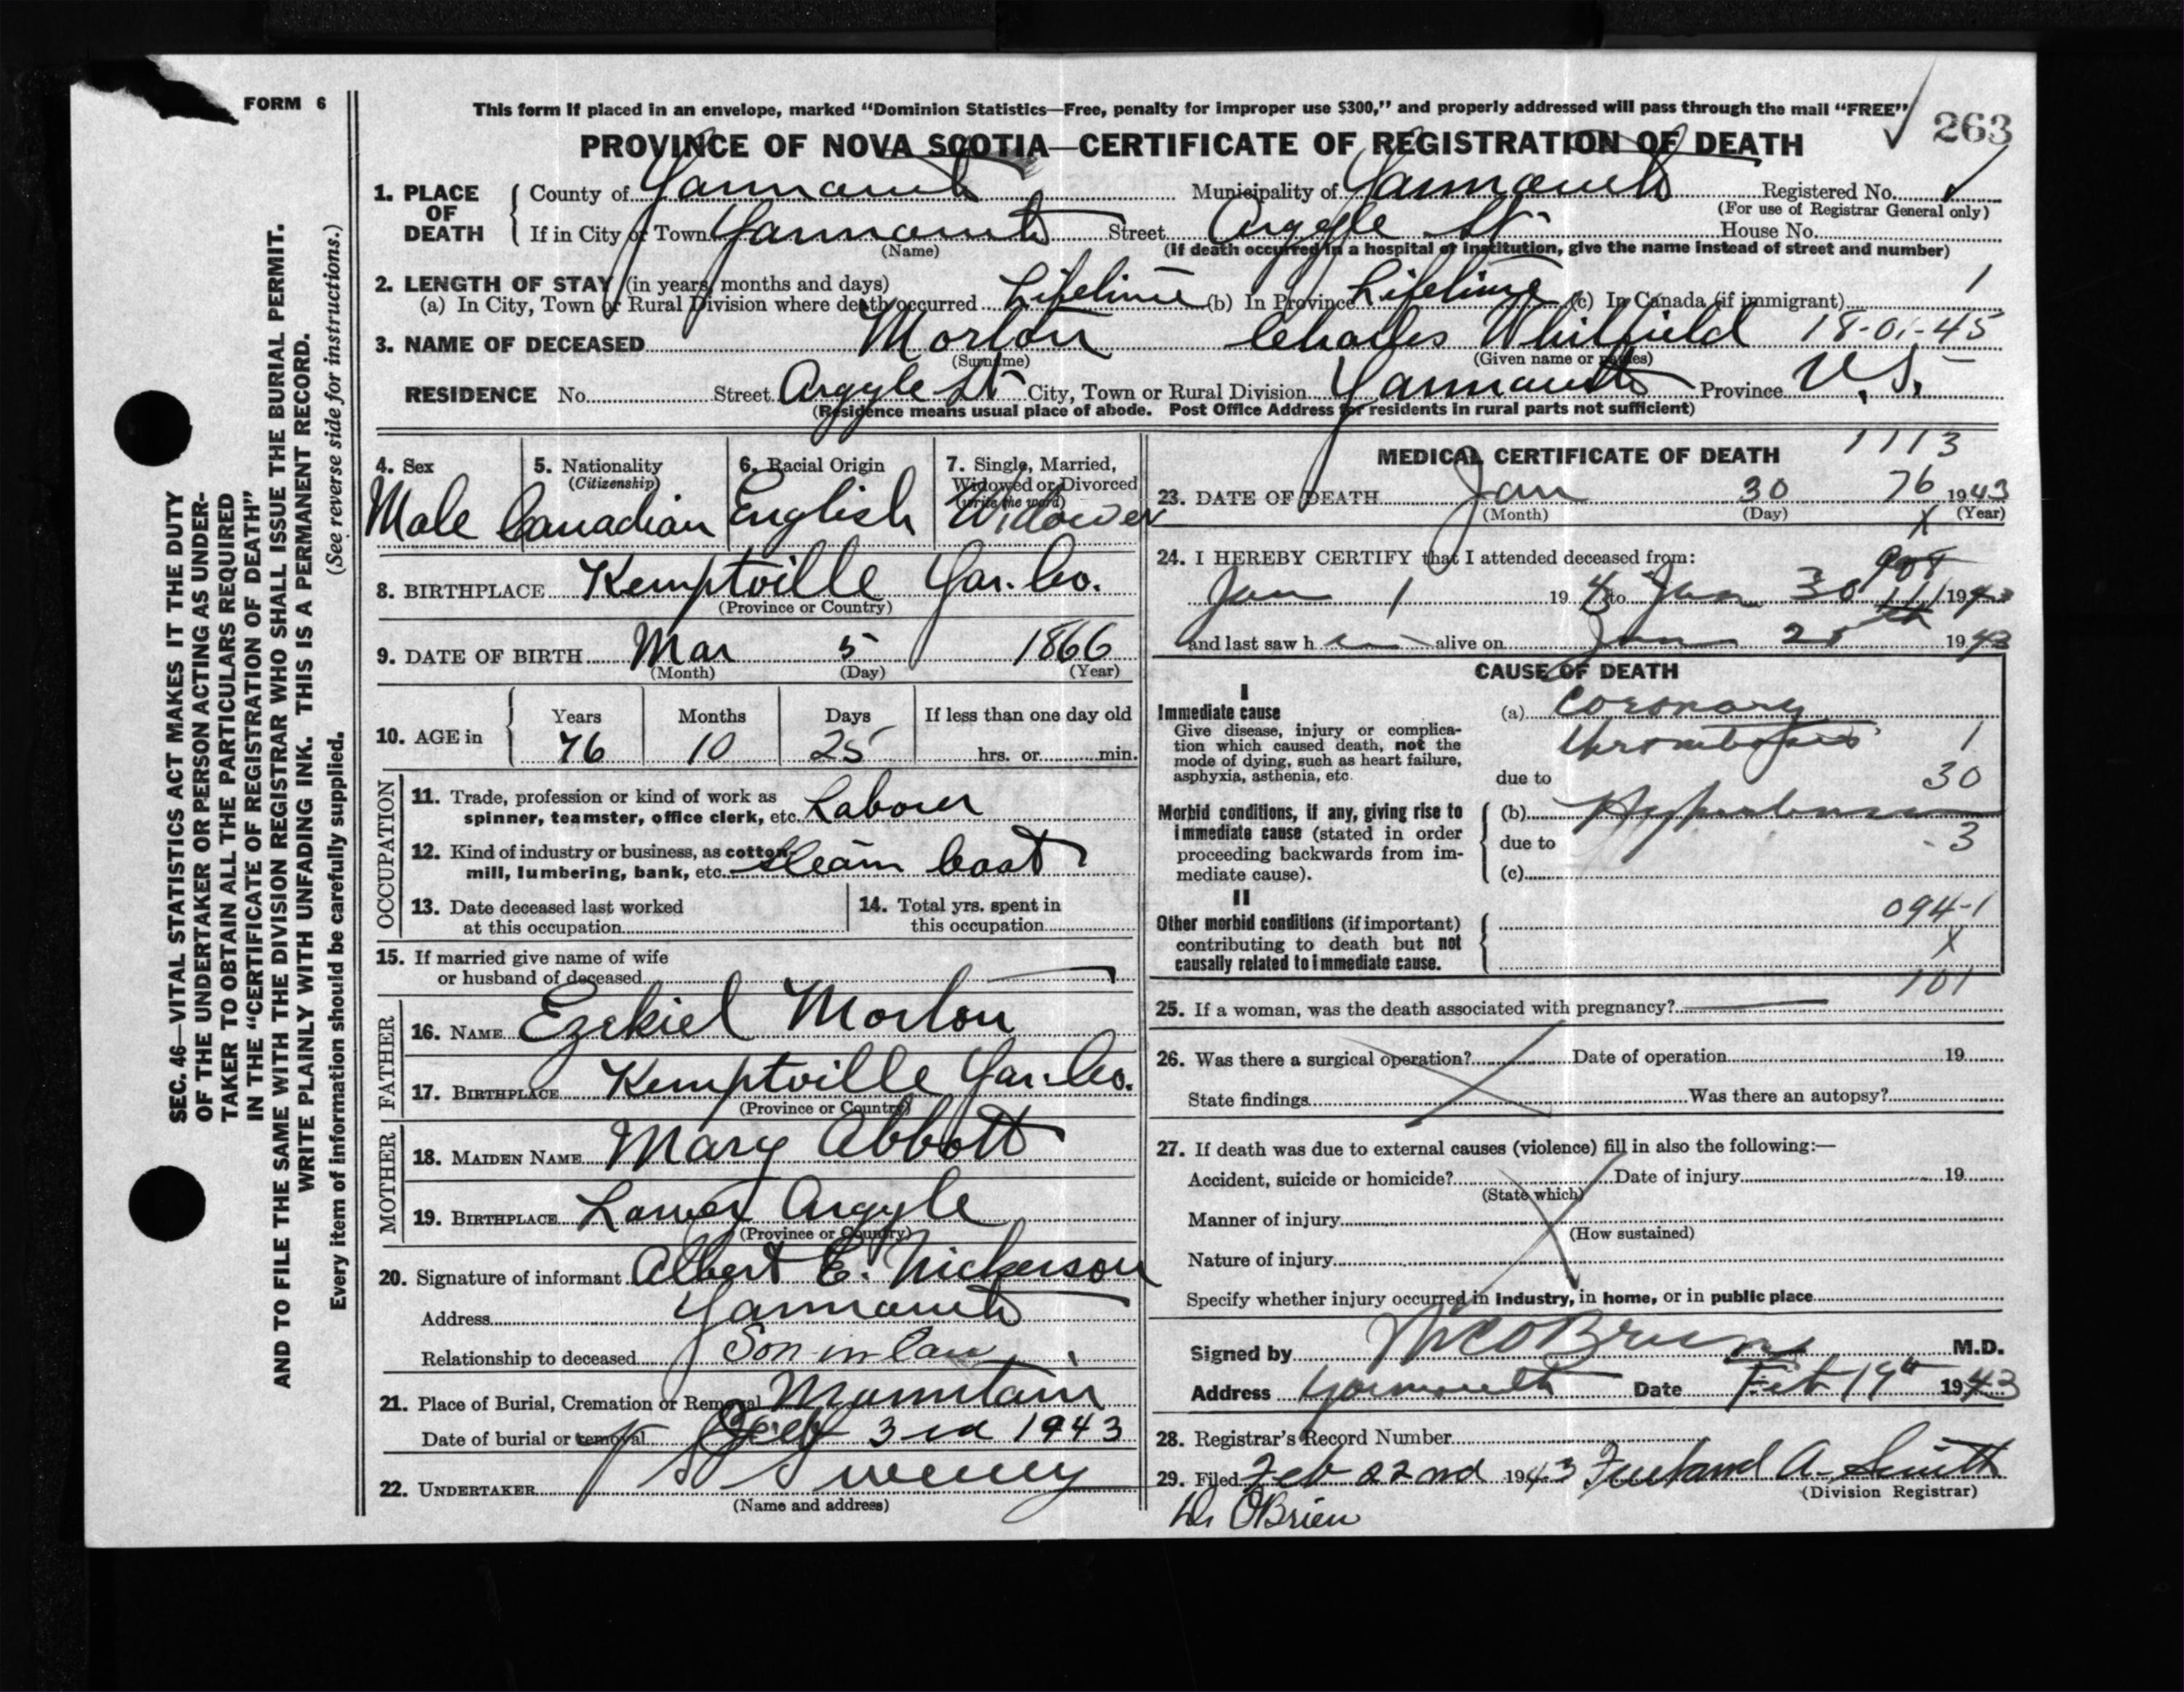 FORM 6
This form if placed in an envelope, marked "Dominion Statistics—Free, penalty for improper use $300," and properly addressed will pass through the mail "FREE"
263
PROVINCE OF NOVA SCOTIA—CERTIFICATE OF REGISTRATION OF DEATH
1. PLACE OF DEATH
County of Yarmouth Municipality of Yarmouth Registered No.
(For use of Registrar General only)
If in City or Town Yarmouth Street Argyle St. House No.
(Name) (If death occurred in a hospital or institution, give the name instead of street and number)
2. LENGTH OF STAY (in years, months and days) 1
(a) In City, Town or Rural Division where death occurred Lifetime (b) In Province Lifetime (c) In Canada (if immigrant)
3. NAME OF DECEASED Morton Charles Whitfield 18-01-45
(Surname) (Given name or names)
RESIDENCE No. Street Argyle St City, Town or Rural Division Yarmouth Province N.S.
(Residence means usual place of abode. Post Office Address for residents in rural parts not sufficient)
4. Sex
Male
5. Nationality
(Citizenship)
Canadian
6. Racial Origin
English
7. Single, Married,
Widowed or Divorced
(write the word)
Widower
8. BIRTHPLACE Kemptville Yar. Co.
(Province or Country)
9. DATE OF BIRTH Mar 5 1866
(Month) (Day) (Year)
10. AGE in
Years Months Days If less than one day old
76 10 25 hrs. or min.
OCCUPATION
11. Trade, profession or kind of work as
spinner, teamster, office clerk, etc. Labourer
12. Kind of industry or business, as cotton
mill, lumbering, bank, etc. Steam boat
13. Date deceased last worked
at this occupation
14. Total yrs. spent in
this occupation
15. If married give name of wife
or husband of deceased
FATHER
16. NAME Ezekiel Morton
17. BIRTHPLACE Kemptville Yar. Co.
(Province or Country)
MOTHER
18. MAIDEN NAME Mary Abbott
19. BIRTHPLACE Lower Argyle
(Province or Country)
20. Signature of informant Albert E. Nickerson
Address Yarmouth
Relationship to deceased Son-in-law
21. Place of Burial, Cremation or Removal Mountain
Date of burial or removal Feb 3rd 1943
22. UNDERTAKER Sweeney
(Name and address)
MEDICAL CERTIFICATE OF DEATH 1113
23. DATE OF DEATH Jan 30 76 1943
(Month) (Day) X (Year)
24. I HEREBY CERTIFY that I attended deceased from:
Jan 1 1943 to Jan 30 1943
and last saw h alive on Jan 1943
CAUSE OF DEATH
I
Immediate cause
Give disease, injury or complica-
tion which caused death, not the
mode of dying, such as heart failure,
asphyxia, asthenia, etc.
(a) Coronary
thrombosis 1
due to 30
Morbid conditions, if any, giving rise to
immediate cause (stated in order
proceeding backwards from im-
mediate cause).
(b) Hypertension
due to 3
(c)
II
Other morbid conditions (if important)
contributing to death but not
causally related to immediate cause.
094-1
X
101
25. If a woman, was the death associated with pregnancy?
26. Was there a surgical operation? Date of operation 19
State findings Was there an autopsy?
27. If death was due to external causes (violence) fill in also the following:—
Accident, suicide or homicide? Date of injury 19
(State which)
Manner of injury
(How sustained)
Nature of injury
Specify whether injury occurred in industry, in home, or in public place
Signed by O'Brien M.D.
Address Yarmouth Date Feb 19th 1943
28. Registrar's Record Number
29. Filed Feb 22nd 1943 A. Smith
(Division Registrar)
Dr O'Brien
SEC. 46—VITAL STATISTICS ACT MAKES IT THE DUTY
OF THE UNDERTAKER OR PERSON ACTING AS UNDER-
TAKER TO OBTAIN ALL THE PARTICULARS REQUIRED
IN THE "CERTIFICATE OF REGISTRATION OF DEATH"
AND TO FILE THE SAME WITH THE DIVISION REGISTRAR WHO SHALL ISSUE THE BURIAL PERMIT.
WRITE PLAINLY WITH UNFADING INK. THIS IS A PERMANENT RECORD.
Every item of information should be carefully supplied. (See reverse side for instructions.)